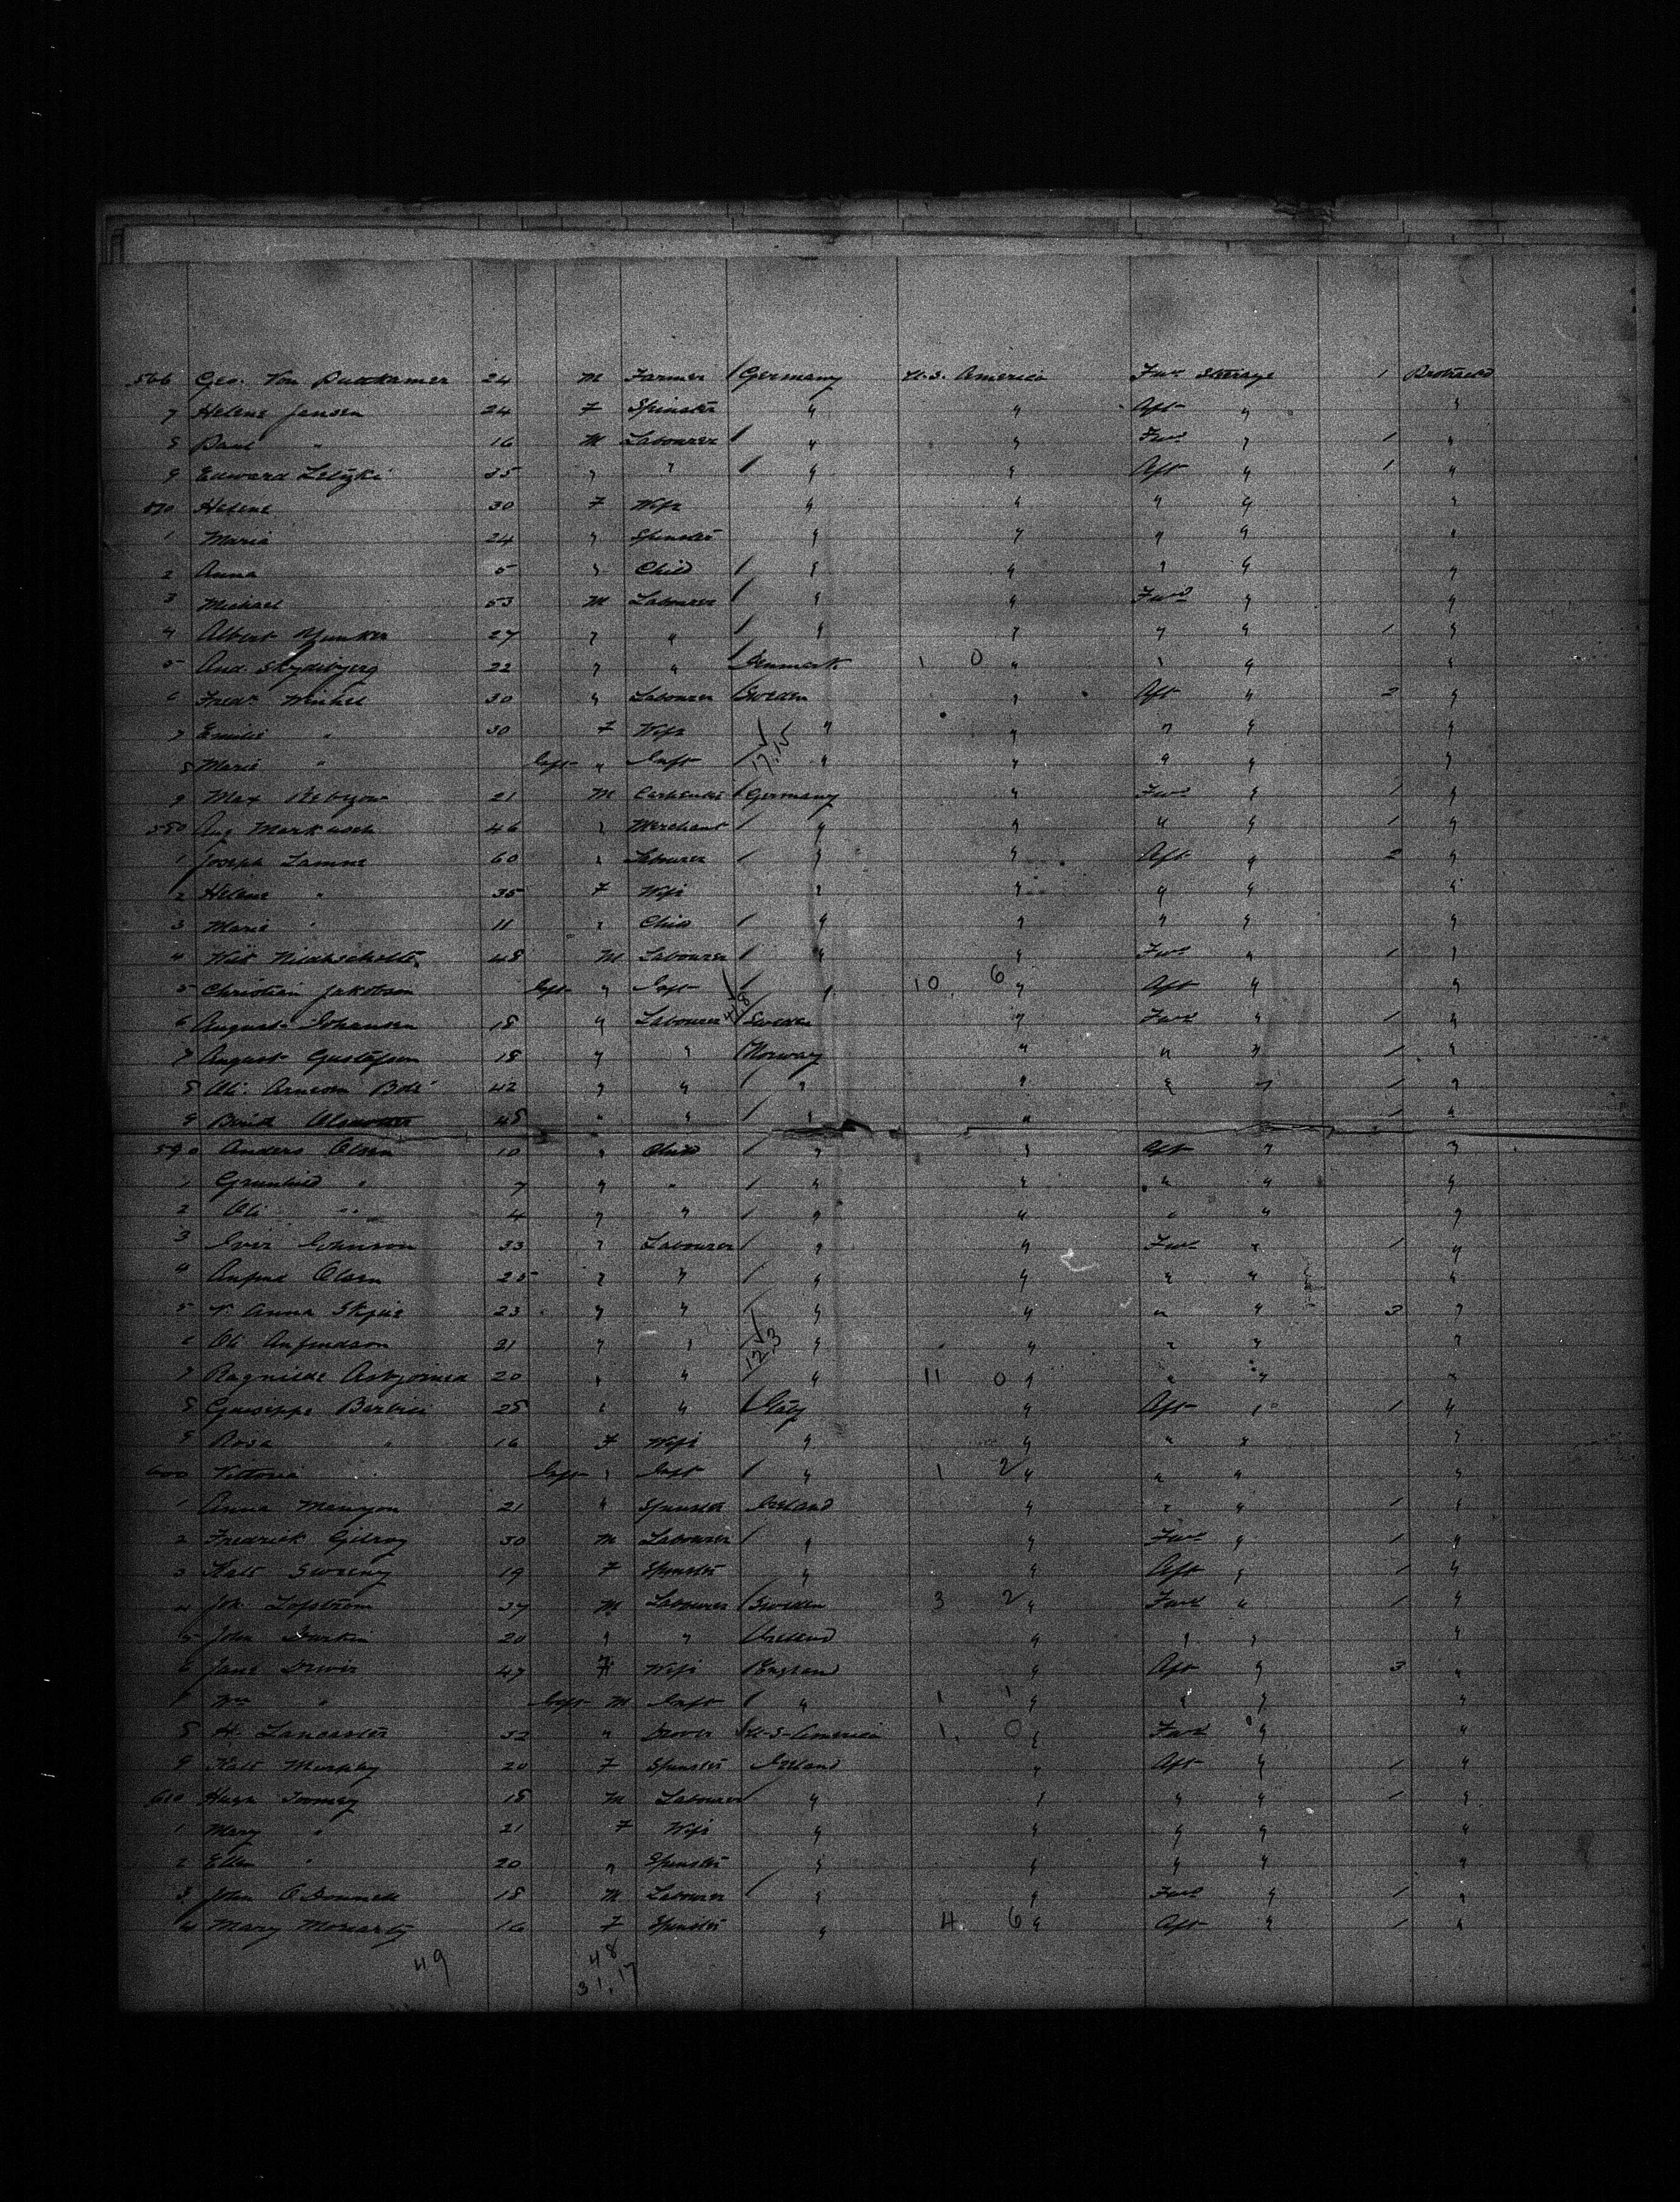 566 Geo. Von Puttkamer 24 M Farmer / Germany U.S. America Fwd Steerage 1 Protracted
7 Helene Jansen 24 F Spinster " " Aft " "
8 Paul " 16 M Labourer / " " Fwd " 1 "
9 Edward 35 " " / " " Aft " 1 "
570 Helene 30 F Wife " " " " "
1 Maria 24 " Spinster " " " " "
2 Anna 5 " Child / " " " " "
3 Michael 53 M Labourer / " " Fwd " "
4 Albert Yunker 27 " " / " " " " 1 "
5 And. 22 " " / Denmark 1 0 " " " "
6 Fredk Winkel 30 " Labourer / Sweden " Aft " 2 "
7 Emilie " 30 F Wife " " " " "
8 Marie " Inft " Inft / 17.15 " " " " "
9 Max 21 M Carpenter / Germany " Fwd " 1 "
580 Aug Markusch 46 " Merchant / " " " " 1 "
1 Joseph Lamne 60 " Labourer / " " Aft " 2 "
2 Helene " 35 F Wife " " " " "
3 Marie " 11 " Child / " " " " "
4 48 M Labourer / " " Fwd " 1 "
5 Christian Jakobson Inft " Inft / " 10. 6 " Aft " "
6 August Johansen 18 " Labourer / Sweden " Fwd " 1 "
7 August Gustafson 18 " " / Norway " " " 1 "
8 Ole Arneson 42 " " / " " " " 1 "
9 48 " " / " " 1 "
590 Anders Olsen 10 " Child / " " Aft " "
1 " 7 " " / " " " " "
2 Ole " 4 " " / " " " " "
3 Iver Johnson 33 " Labourer / " " Fwd " 1 "
4 Olsen 25 " " / " " " " "
5 Anna 23 " " / " " " " 3 "
6 Ole 21 " " / 12.3 " " " " "
7 20 " " / " 11 0 " " " "
8 Guiseppe 28 " " / Italy " Aft " 1 "
9 Rosa " 16 F Wife " " " " "
600 Vittoria Inft " Inft / " 1 2 " " " "
1 Anna 21 " Spinster Ireland " " " 1 "
2 Fredrick Gilroy 30 M Labourer / " " Fwd " 1 "
3 Kate Sweeny 19 F Spinster " " Aft " 1 "
4 Joh. Lofstrom 37 M Labourer / Sweden 3 2 " Fwd " 1 "
5 John Durkin 20 " " / Ireland " " " "
6 Jane 47 F Wife / England " Aft " 3 "
7 Wm " Inft M Inft / " 1 1 " " " "
8 H. Lancaster 32 " Drover / U.S. America 1. 0 " Fwd " "
9 Kate Murphy 20 F Spinster Ireland " Aft " 1 "
610 Hugh Toomey 18 M Labourer / " " " " 1 "
1 Mary " 21 F Wife " " " " "
2 Ellen " 20 " Spinster " " " " "
3 John O'Donnell 18 M Labourer / " " Fwd " 1 "
4 Mary Moriarty 16 F Spinster " 4. 6 " Aft " 1 "
49 48
31.17